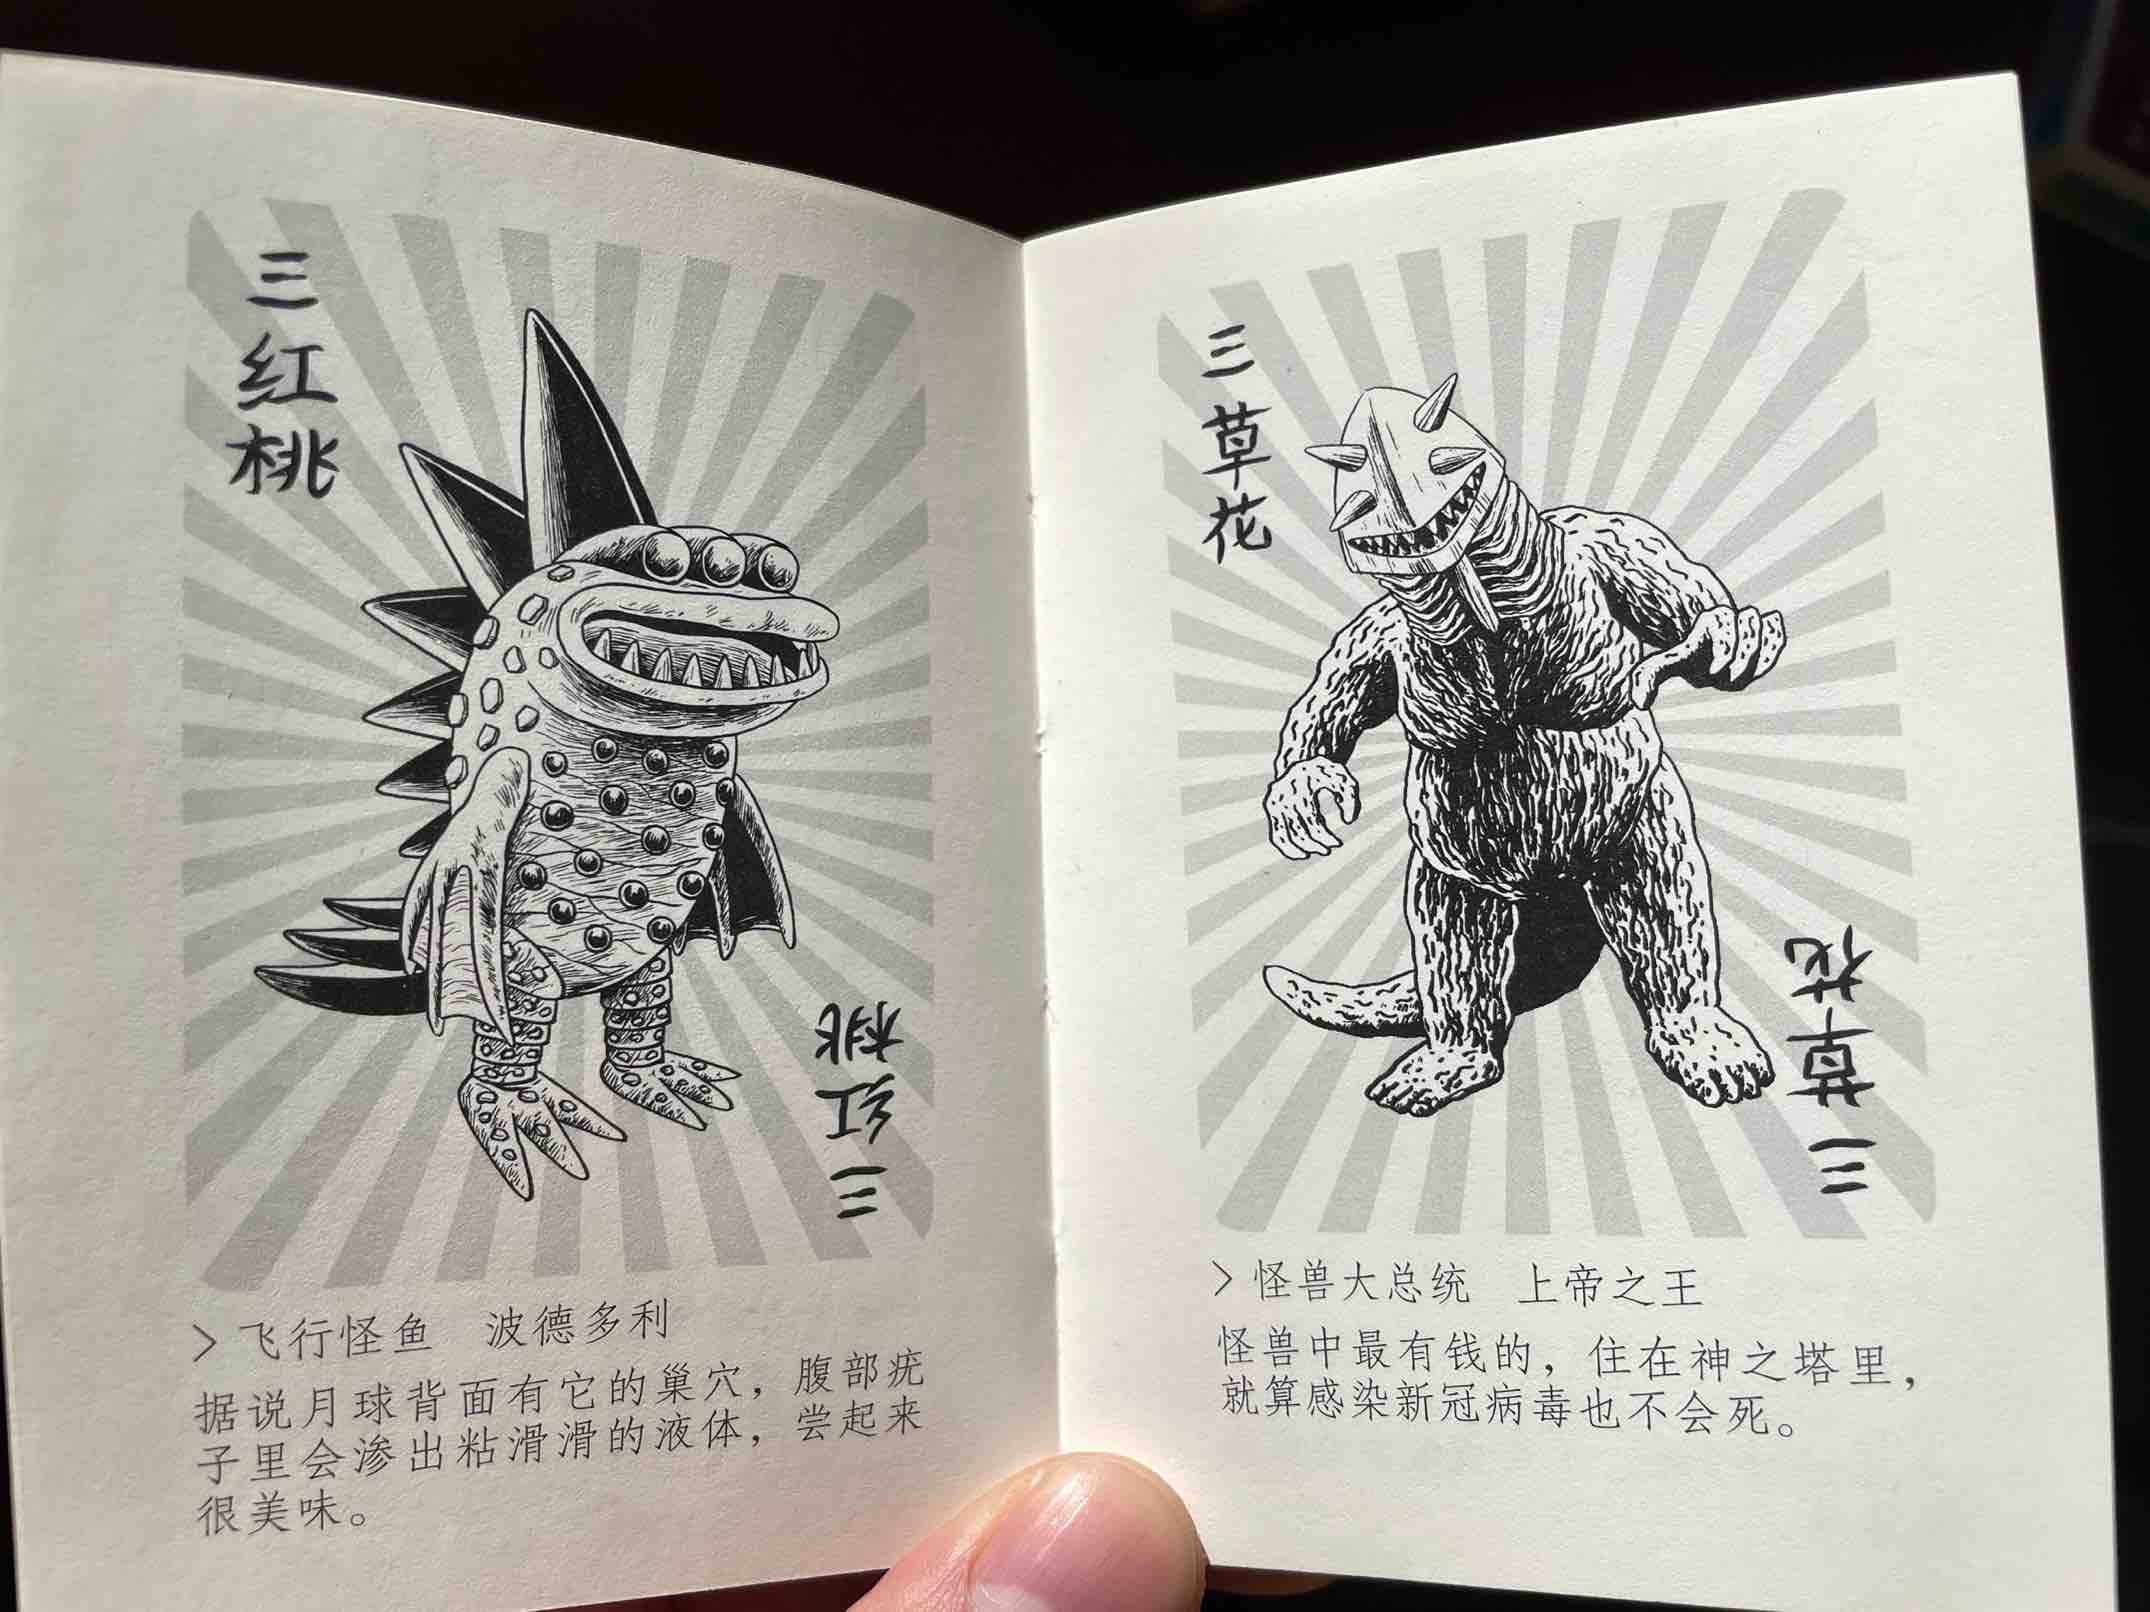 三红桃
三红桃
> 飞行怪鱼 波德多利
据说月球背面有它的巢穴，腹部疣
子里会渗出粘滑滑的液体，尝起来
很美味。
三草花
三草花
> 怪兽大总统 上帝之王
怪兽中最有钱的，住在神之塔里，
就算感染新冠病毒也不会死。